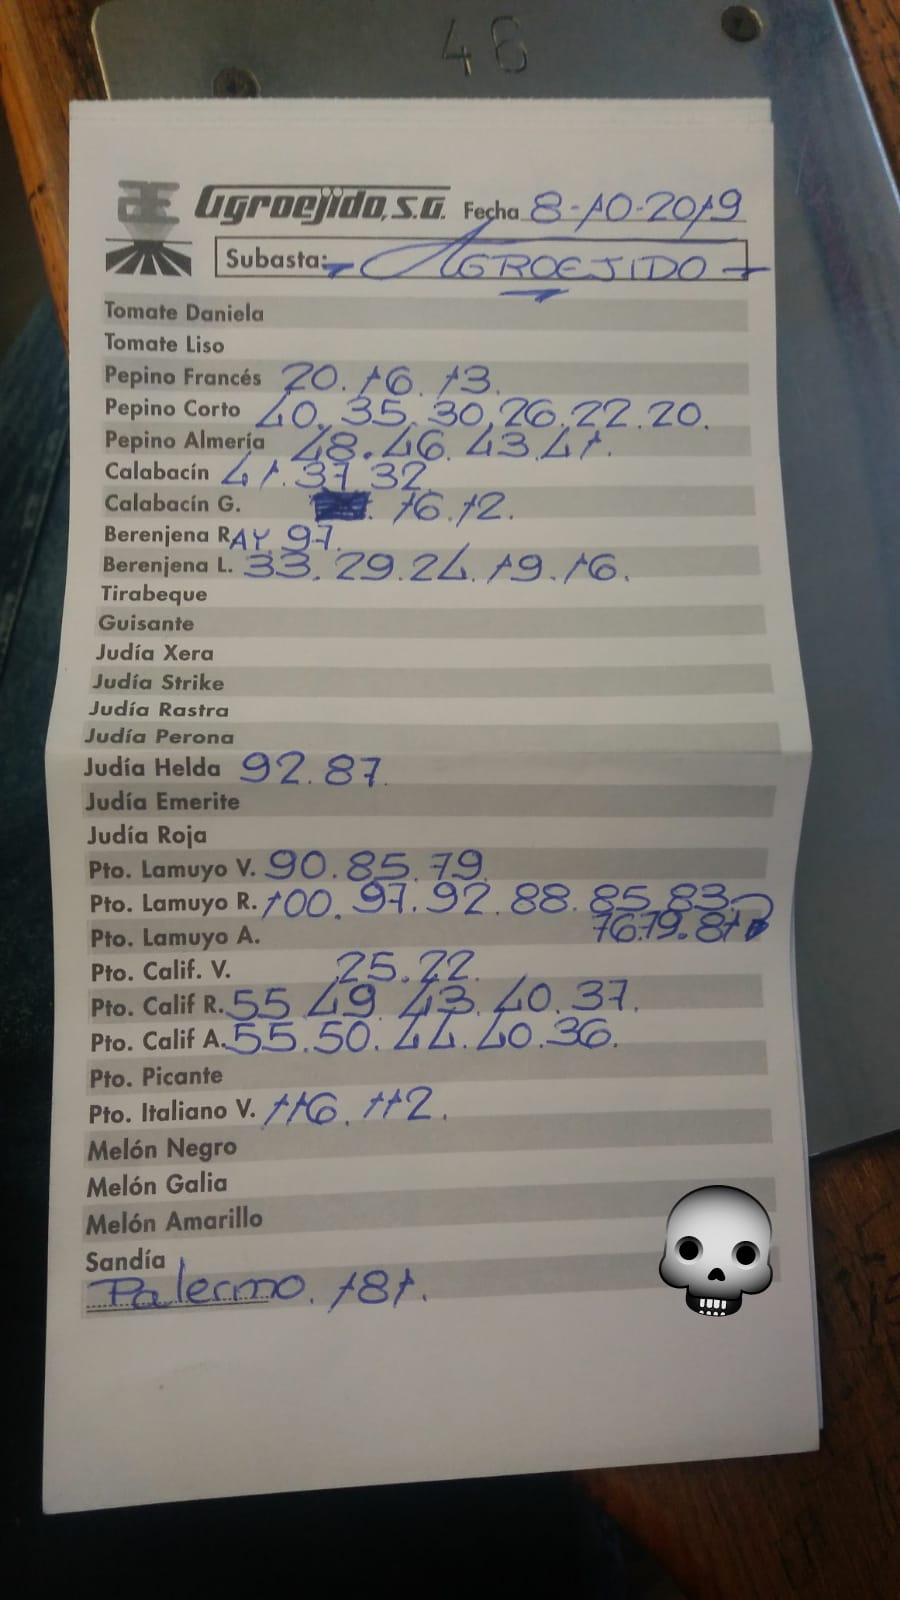 46
Agroejido, S.A. Fecha 8-10-2019
Subasta: AGROEJIDO
Tomate Daniela
Tomate Liso
Pepino Francés 20. 16. 13.
Pepino Corto 40. 35. 30. 26. 22. 20.
Pepino Almería 48. 46. 43. 41.
Calabacín 41. 37. 32.
Calabacín G. 16. 12.
Berenjena RAY. 97.
Berenjena L. 33. 29. 24. 19. 16.
Tirabeque
Guisante
Judía Xera
Judía Strike
Judía Rastra
Judía Perona
Judía Helda 92. 87.
Judía Emerite
Judía Roja
Pto. Lamuyo V. 90. 85. 79.
Pto. Lamuyo R. 100. 97. 92. 88. 85. 83.
Pto. Lamuyo A. 76.79. 81
Pto. Calif. V. 25. 22.
Pto. Calif R. 55. 49. 43. 40. 37.
Pto. Calif A. 55. 50. 44. 40. 36.
Pto. Picante
Pto. Italiano V. 116. 112.
Melón Negro
Melón Galia
Melón Amarillo
Sandía
Palermo. 181.